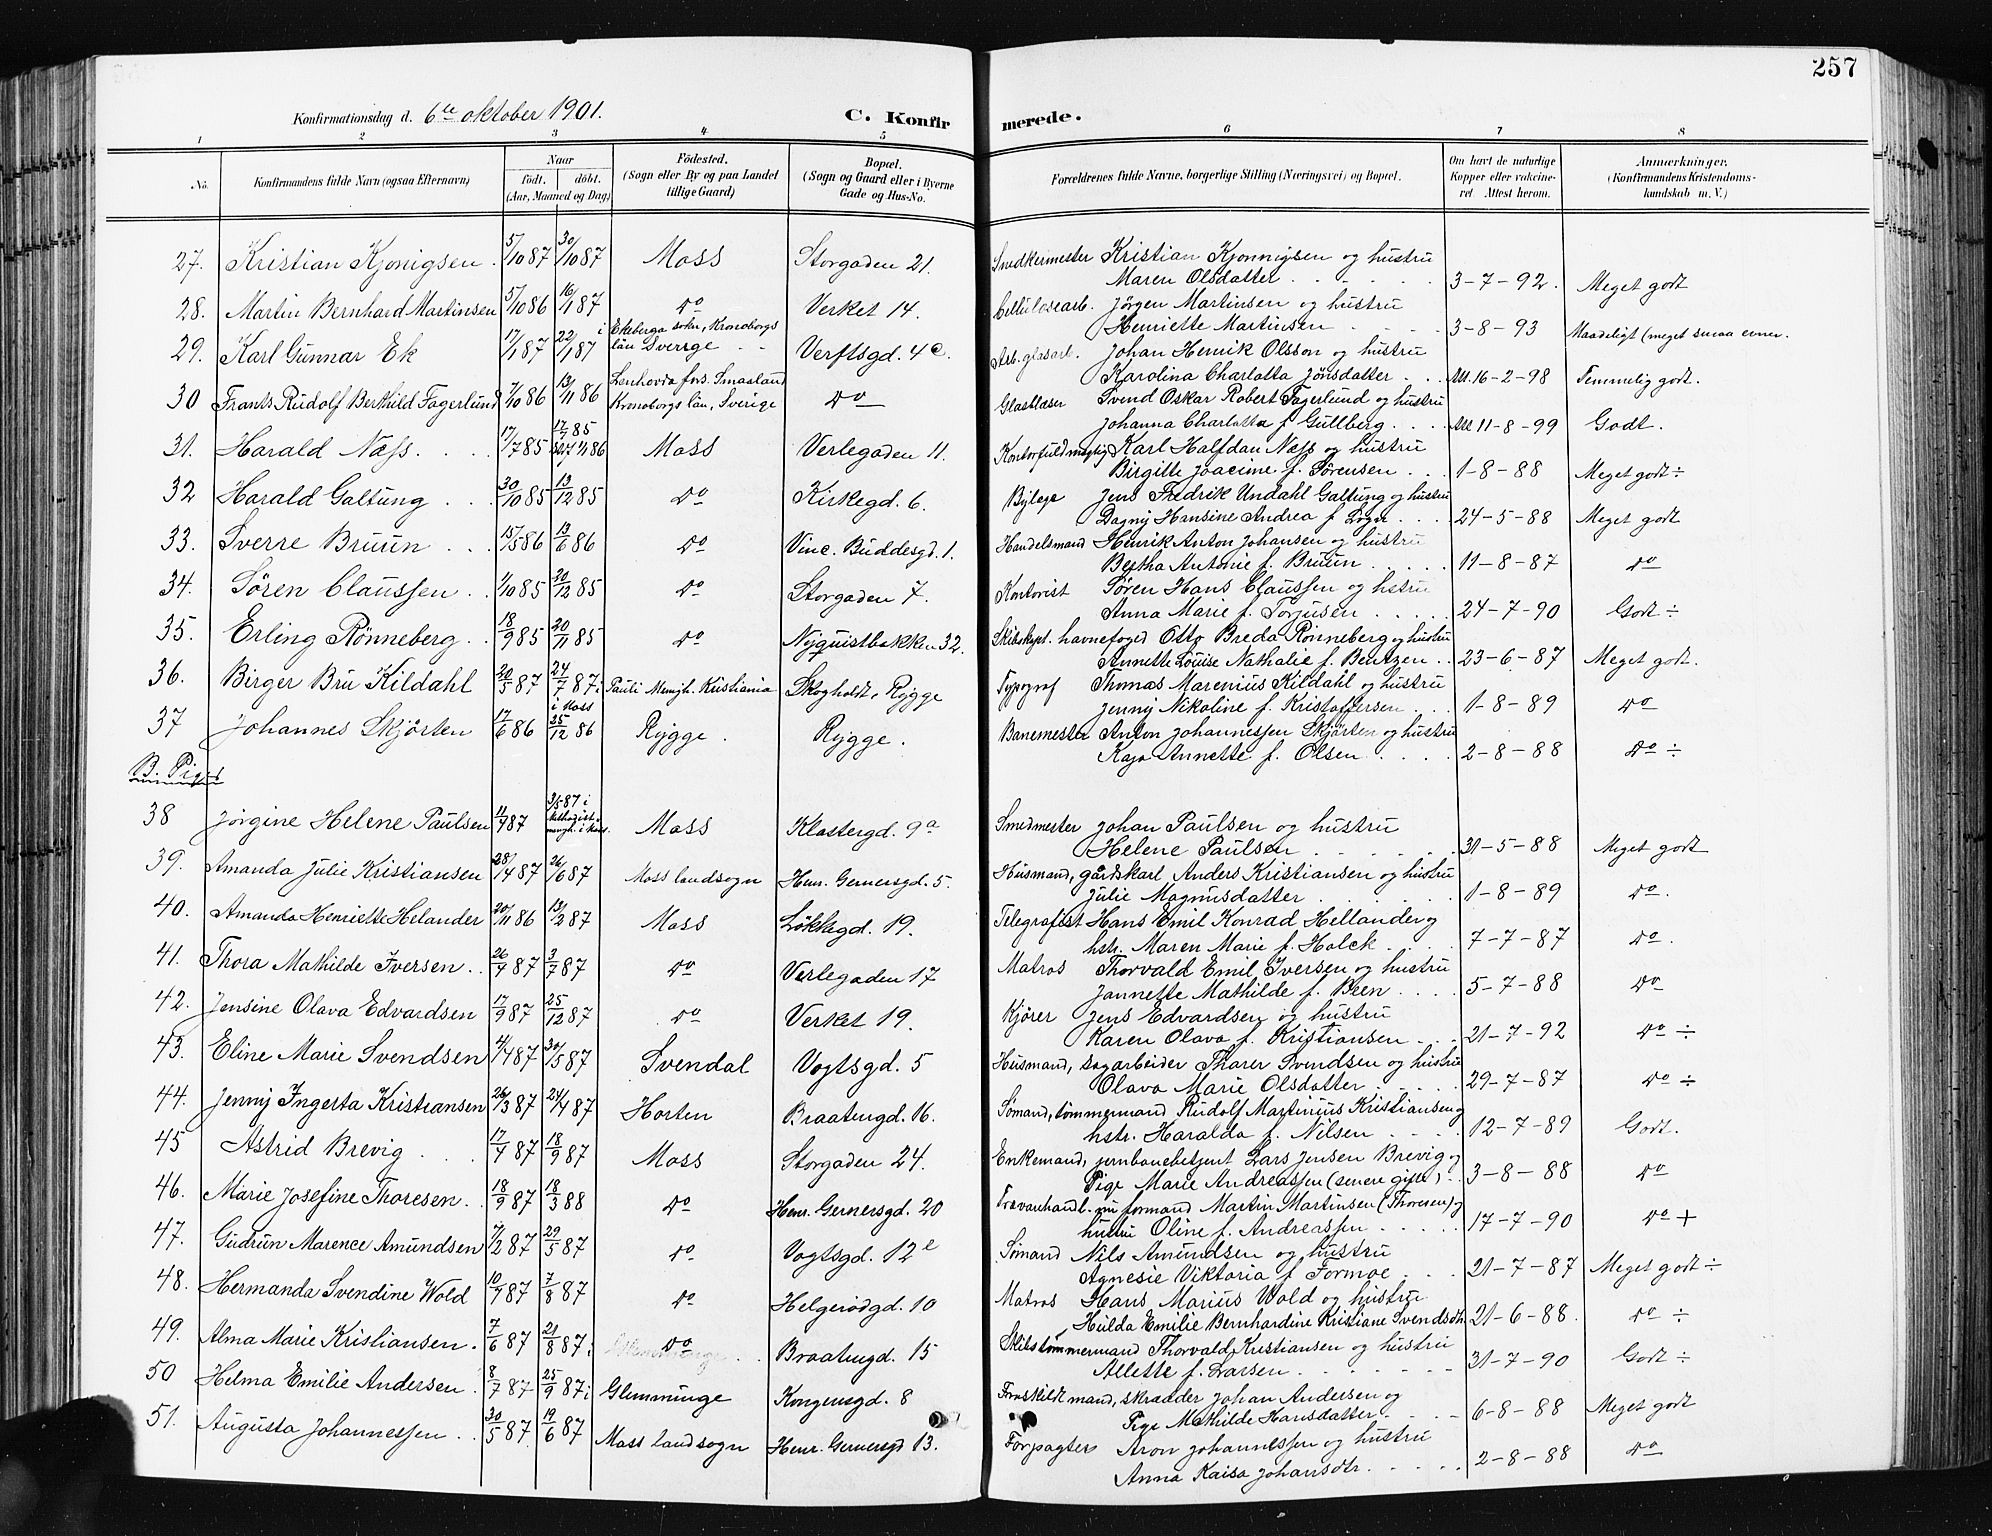 257
Konfirmationsdag d. 6te oktober 1901.
C. Konfir merede.
1 2 3 4 5 6 7 8
No.
Konfirmandens fulde Navn (ogsaa Efternavn)
Naar
födt. döbt.
(Aar, Maaned og Dag)
Födested.
(Sogn eller By og paa Landet
tillige Gaard)
Bopæl.
(Sogn og Gaard eller i Byerne
Gade og Hus-No.
Forældrenes fulde Navne, borgerlige Stilling (Næringsvei) og Bopæl.
Om havt de naturlige
Kopper eller vakcine-
ret. Attest herom.
Anmærkninger.
(Konfirmandens Kristendoms-
kundskab m. V.)
27. Kristian Kjonigsen 5/10 87 30/10 87 Moss Storgaden 21. Snedkermester Kristian Kjonnigsen og hustru
Maren Olsdatter 3-7-92. Meget godt
28. Martin Bernhard Martinsen 5/10 86 16/1 87 do Verket 14. Cellulosearb. Jörgen Martinsen og hustru
Henriette Martinsen 3-8-93 Maadeligt (meget smaa evner.
29. Karl Gunnar Ek 17/1 87 22/1 87 i Ekeberga sokn, Kronoborgs
län Sverrge Verftsgd. 4c. Arb. glasarb. Johan Henrik Olsson og hustru
Karolina Charlatta Jönsdatter Att. 16-2-98 Temmelig godt.
30 Frants Rudolf Berthild Fagerlund 7/10 86 13/11 86 Lenhovda fors. Smaaland
Kronoborgs län, Sverige do Glasblæser Svend Oskar Robert Fagerlund og hustru
Johanna Charlatta f. Gullberg Att 11-8-99 Godt.
31. Harald Næss. 17/7 85 Moss Verlegaden 11. Kontorfuldmægtig Karl Halfdan Næss og hustru
Birgitte Joacime f. Sörensen 1-8-88 Meget godt ÷
32 Harald Galtung 30/10 85 13/12 85 do Kirkegd. 6. Bylæge Jens Fredrik Undahl Galtung og hustru
Dagny Hansine Andrea f. 24-5-88 Meget godt
33. Sverre Bruun 15/5 86 13/6 86 do Vinc. Buddesgd. 1. Handelsmand Henrik Anton Johansen og hustru
Bertha Antonie f. Bruun 11-8-87 do
34. Sören Claussen 1/10 85 20/12 85 do Storgaden 7. Kontorist Sören Hans Claussen og hstru
Anna Marie f. Torjusen 24-7-90 Godt ÷
35. Erling Rönneberg 18/9 85 20/11 85 do Nyquistbakken 32. Skibskapt. havnefoged Otto Breda Rönneberg og hustru
Annette Louise Nathalie f. Bentzen 23-6-87 Meget godt.
36. Birger Bru Kildahl 20/5 87 24/7 87 i Pauli Menigh. Kristiania Skogholdt, Rygge Typograf Thomas Marenius Kildahl og hustru
Jenny Nikoline f. Kristoffersen 1-8-89 do
37 Johannes Skjörten 17/6 86 i Moss 25/12 86 Rygge Rygge. Banemester Anton Johannessen Skjörten og hustru
Kaja Annette f. Olsen 2-8-88 do ÷
B. Piger
38 Jörgine Helene Paulsen 11/4 87 3/5 87 i
Methodist
menigh. i Moss. Moss Klostergd. 9a Smedmester Johan Paulsen og hustru
Helene Paulsen 31-5-88 Meget godt
39. Amanda Julie Kristiansen 28/4 87 26/6 87 Moss landsogn Henr. Gernersgd. 5. Husmand, gårdskarl Anders Kristiansen og hustru
Julie Magnusdatter 1-8-89 do.
40. Amanda Henriette Helander 20/11 86 13/2 87 Moss Lökkegd. 19. Telegrafist Hans Emil Konrad Hellander og
hstr. Maren Marie f. Holck 7-7-87 do.
41. Thora Mathilde Iversen 26/4 87 3/7 87 do Verlegaden 17 Matros Thorvald Emil Iversen og hustru
Jannette Mathilde f. Been 5-7-88 do
42. Jensine Olava Edvardsen 17/9 87 25/12 87 do Verket 19. Kjörer Jens Edvardsen og hustru
Karen Olava f. Kristiansen 21-7-92 do ÷
43. Eline Marie Svendsen 4/4 87 30/5 87 Svendal Vogtsgd. 5 Husmand, sagarbeider Tharer Svendsen og hustru
Olava Marie Olsdatter 29-7-87 do ÷
44. Jenny Ingerta Kristiansen 26/3 87 24/4 87 Horten Braatengd. 16. Sömand, tömmermand Rudolf Martinius Kristiansen og
hstr. Haralda f. Nilsen 12-7-89 Godt.
45 Astrid Brevig 17/4 87 18/9 87 Moss Storgaden 24. Enkemand, jernbanebetjent Lars Jensen Brevig og
Pige Marie Andreassen (senere gifte) 3-8-88 do
46. Marie Josefine Thoresen 18/9 87 18/3 88 do Henr. Gernersgd. 20 Trævarehandl. nu formand Martin Martinsen (Thoresen) og
hustru Oline f. Andreassen 17-7-90 do +
47. Gudrun Marence Amundsen 7/2 87 29/5 87 do Vogtsgd. 12e Sömand Nils Amundsen og hustru
Agnesie Viktoria f. Formoe 21-7-87 Meget godt ÷
48. Hermanda Svendine Wold 10/4 87 7/8 87 do Helgerödgd. 10 Matros Hans Marius Wold og hustru
Hulda Emilie Bernhardine Kristiane Svendsdtr. 21-6-88. do ÷
49. Alma Marie Kristiansen. 7/6 87 21/8 87 do Braatengd. 15 Skibstömmermand Thorvald Kristiansen og hustru
Allette f. Larsen 31-7-90 Godt ÷
50 Helma Emilie Andersen 8/7 87 25/9 87 i Glemminge Kongensgd. 8 Fraskildt mand, skrædder Johan Andersen og
Pige Mathilde Hansdatter 6-8-88 Meget godt
51. Augusta Johannessen 30/5 87 19/6 87 Moss landsogn Henr. Gernersgd 13. Forpagter Aron Johannessen og hustru
Anna Kaisa Johansdtr. 2-8-88 do